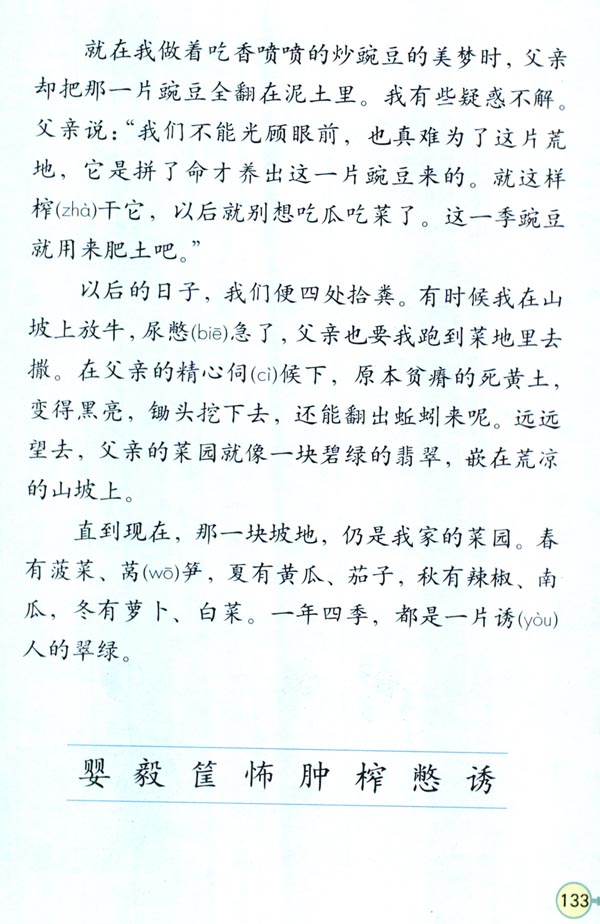 就在我做着吃香喷喷的炒豌豆的美梦时，父亲
却把那一片豌豆全翻在泥土里。我有些疑惑不解。
父亲说：“我们不能光顾眼前，也真难为了这片荒
地，它是拼了命才养出这一片豌豆来的。就这样
榨(zhà)干它，以后就别想吃瓜吃菜了。这一季豌豆
就用来肥土吧。”
以后的日子，我们便四处拾粪。有时候我在山
坡上放牛，尿憋(biē)急了，父亲也要我跑到菜地里去
撒。在父亲的精心伺(cì)候下，原本贫瘠的死黄土，
变得黑亮，锄头挖下去，还能翻出蚯蚓来呢。远远
望去，父亲的菜园就像一块碧绿的翡翠，嵌在荒凉
的山坡上。
直到现在，那一块坡地，仍是我家的菜园。春
有菠菜、莴(wō)笋，夏有黄瓜、茄子，秋有辣椒、南
瓜，冬有萝卜、白菜。一年四季，都是一片诱(yòu)
人的翠绿。
婴 毅 筐 怖 肿 榨 憋 诱
133